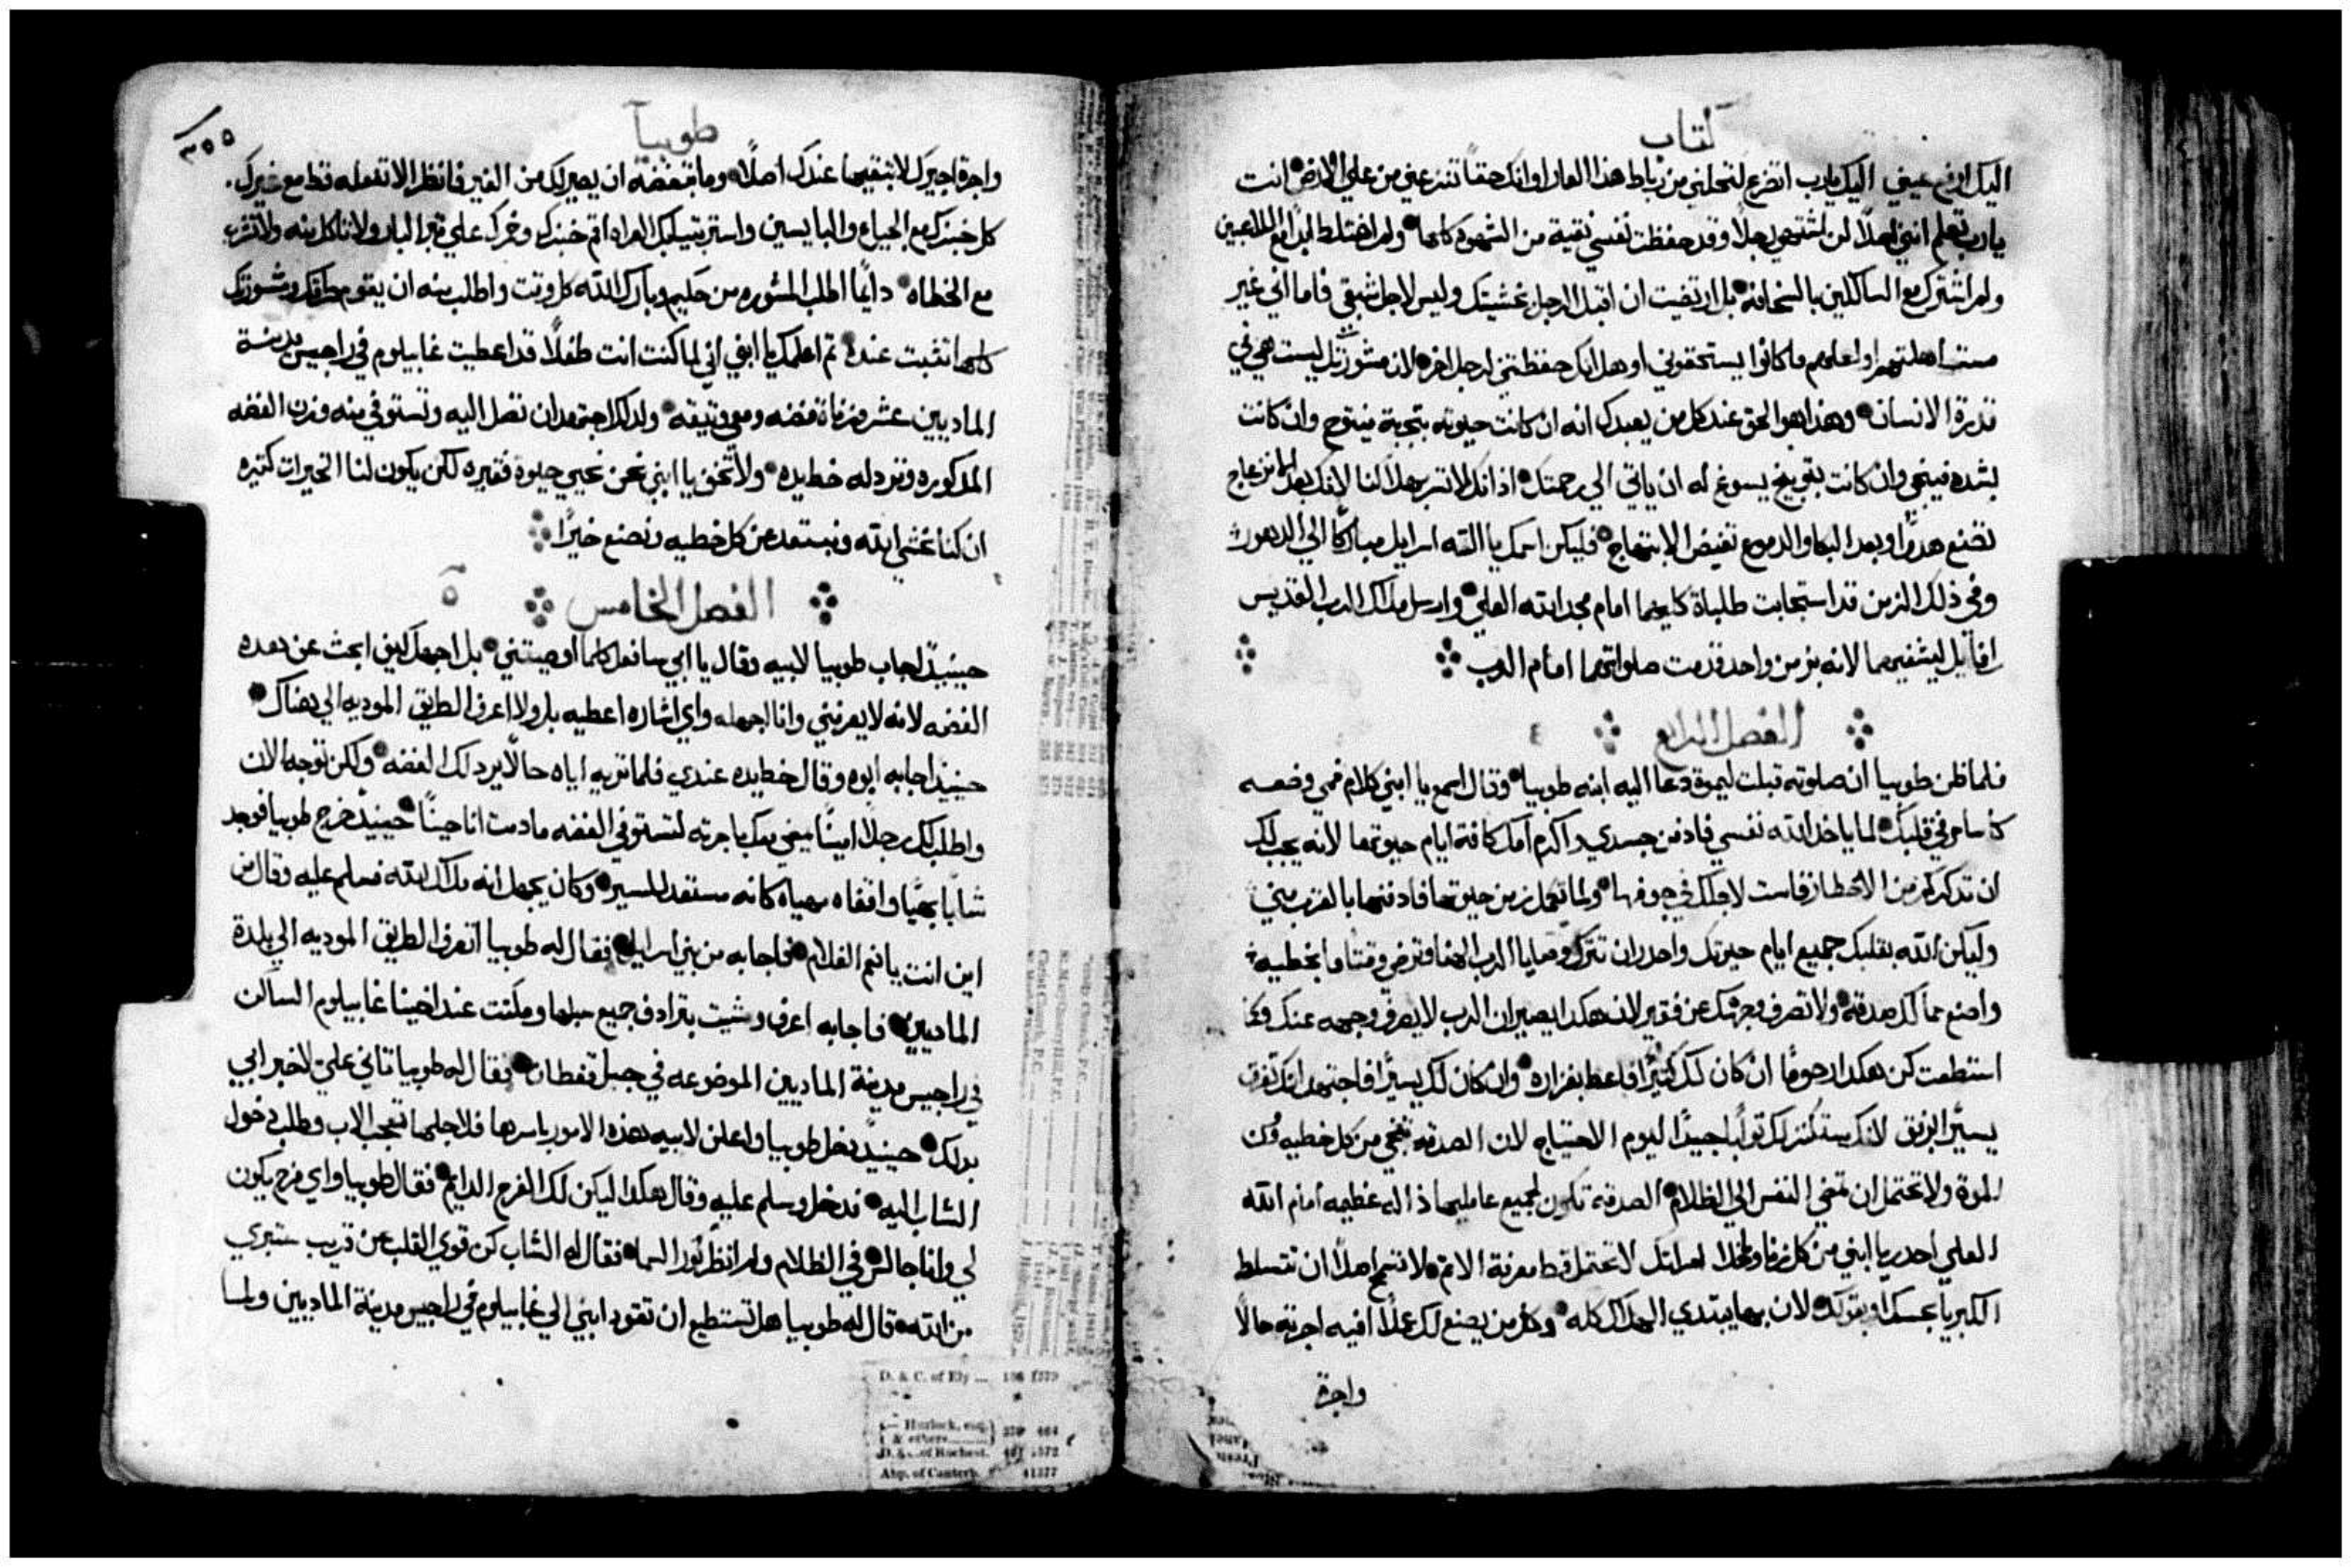 كتاب
اليك ارفع عيني اليك يارب اتضرع لتحلني من رباط هذا العار او انك حقاً تنزعني من علي الارض انت
يارب تعلم انني اصلاً لن اشتهي رجلاً وقد حفظت نفسي نقية من الشهوة كلها ولم اختلط ابداً مع اللاعبين
ولم اشترك مع السالكين بالسخافه بل ارتضيت ان اقبل الرجل بخشيتك وليس لاجل شبقي فاما اني غير
مستاهلتهم او لعلهم ما كانوا يستحقوني او هل انك حفظتني لرجل اخر لان مشورتك ليست هي في
قدرة الانسان وهذا هو الحق عند كل من يعبدك انه ان كانت حيوته بتجربة فيتوج وان كانت
بشده فينجي وان كانت بتوبيخ يسوغ له ان ياتي الي رحمتك اذ انك لا تسر بهلاكنا لانك بعد الانزعاج
تصنع هدواً وبعد البكا والدموع تفيض الابتهاج فليكن اسمك يا الله اسرايل مباركاً الي الدهور
وفي ذلك الزمن قد استجابت طلباة كليهما امام مجد الله العلي وارسل ملاك الرب القديس
رافاييل ليشفيهما لانه بزمن واحد قدمت صلواتهما امام الرب
الفصل الرابع ٤
فلما ظن طوبيا ان صلوته قبلت ليموة دعا اليه ابنه طوبيا وقال اسمع يا ابني كلام فمي وضعه
كاساس في قلبك لما ياخذ الله نفسي فادفن جسدي واكرم امك كافة ايام حيوتها لانه يجب لك
ان تذكر كم من الاخطار قاست لاجلك في جوفها ولما تكمل زمن حيوتها فادفنها بالقرب مني
وليكن الله بقلبك جميع ايام حيوتك واحدر ان تترك وصايا الرب الهنا وترضي وقتاً ما بخطيه
واصنع من مالك صدقة ولا تصرف وجهك عن فقير لان هكذا يصير ان الرب لا يصرف وجهه عنك وكما
استطعت كن هكذا رحوماً ان كان لك كثيراً فاعط بغزاره وان كان لك يسيراً فاجتهد انك تفرق
يسيراً برفق لانك ستكنز لك ثواباً جيداً اليوم الاحتياج لان الصدقه تنجي من كل خطيه ومن
الموة ولا تحتمل ان تمضي النفس الي الظلام الصدقة تكون لجميع عامليها دالة عظيمه امام الله
العلي احدر يا ابني من كل زنا وماخلا امراتك لا تحتمل قط معرفة الاثم لا تسمح اصلاً ان تتسلط
الكبريا بحسك او بقولك لان بها يبتدي الهلاك كله وكل من يصنع لك عملاً افيه اجرته حالاً
واجرة
طوبيا
٣٥٥
واجرة اجيرك لا تبقيها عندك اصلاً وما تبغضه ان يصير لك من الغير فانظر الا تفعله قط مع غيرك
كل خبزك مع الجياع والبايسين واستر بثيابك العراه اقم خبزك وخمرك علي قبر البار ولا تاكل منه ولا تشرب
مع الخطاه دايماً اطلب المشوره من حكيم وبارك الله كل وقت واطلب منه ان يقوم طرقك ومشورتك
كلها تثبت عنده ثم اعلمك يا ابني اني لما كنت انت طفلاً قد اعطيت غابيلوم في راجيس مدينة
الماديين عشر وزناة فضه ومعي وثيقته ولدلك اجتهد ان تصل اليه وتستوفي منه وزن الفضه
المدكوره وترد له خط يده ولا تخف يا ابني نحن نحيي حيوة فقيره لكن يكون لنا الخيرات كثيره
ان كنا نخشي الله ونبتعد من كل خطيه ونصنع خيراً
الفصل الخامس ٥
حينيدٍ اجاب طوبيا لابيه وقال يا ابي سافعل كلما اوصيتني بل اجهل كيف ابحث عن هده
الفضه لانه لا يعرفني وانا اجهله واي اشاره اعطيه بل ولا اعرف الطريق الموديه الي هناك
حينيدٍ اجابه ابوه وقال خط يده عندي فلما تريه اياه حالاً يرد لك الفضه ولكن توجه الان
واطلب لك رجلاً اميناً يمضي معك باجرته لتستوفي الفضه مادمت انا حياً حينيدٍ خرج طوبيا فوجد
شاباً بهياً واقفاه مهياه كانه مستعد للمسير وكان يجهل انه ملاك الله فسلم عليه وقال من
اين انت يا نعم الغلام فاجابه من بني اسرايل فقال له طوبيا اتعرف الطريق الموديه الي بلدة
الماديين فاجابه اعرف ومشيت بترادف جميع سبلها ومكثت عند اخينا غابيلوم الساكن
في راجيس مدينة الماديين الموضوعه في جبل قفطان فقال له طوبيا تاني علي لاخبر ابي
بدلك حينيدٍ دخل طوبيا واعلن لابيه هذه الامور باسرها فلاجلها تعجب الاب وطلب دخول
الشاب اليه فدخل وسلم عليه وقال هكدا ليكن لك الفرح الدايم فقال طوبيا واي فرح يكون
لي وانا جالس في الظلام ولم انظر نور السما فقال له الشاب كن قوي القلب عن قريب ستبري
من الله قال له طوبيا هل تستطيع ان تقود ابني الي غابيلوم في راجيس مدينة الماديين ولما
D. & C. of Ely
Hurlock, esq.
& others
D. & C. of Rochest.
Abp. of Canterb.